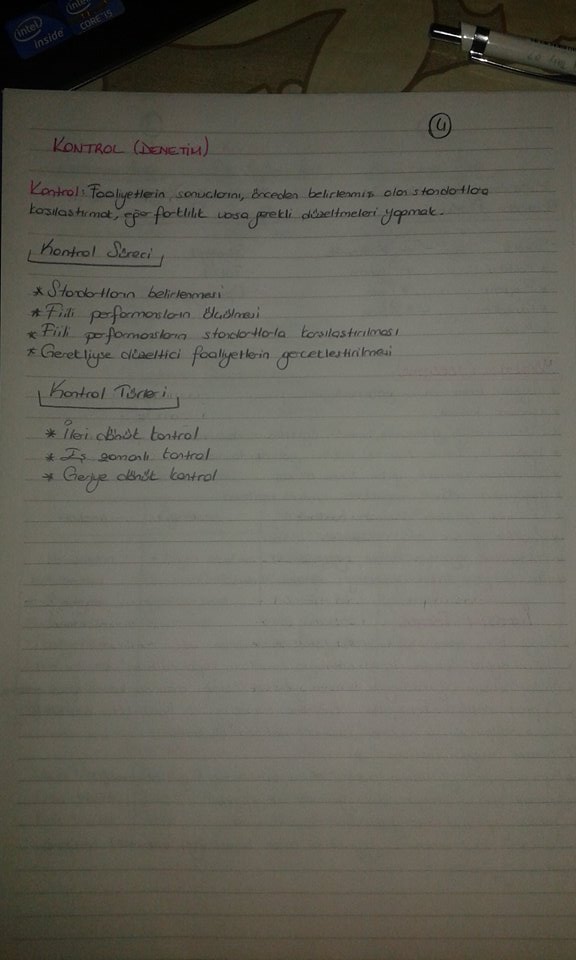 intel inside
intel CORE i5
4
KONTROL (DENETİM)
Kontrol: Faaliyetlerin sonuçlarını, önceden belirlenmiş olan standartlara
karşılaştırmak, eğer farklılık varsa gerekli düzeltmeleri yapmak.
Kontrol Süreci
* Standartların belirlenmesi
* Fiili performansların ölçülmesi
* Fiili performansların standartlarla karşılaştırılması
* Gerekliyse düzeltici faaliyetlerin gerçekleştirilmesi
Kontrol Türleri
* İleri dönük kontrol
* Eş zamanlı kontrol
* Geriye dönük kontrol